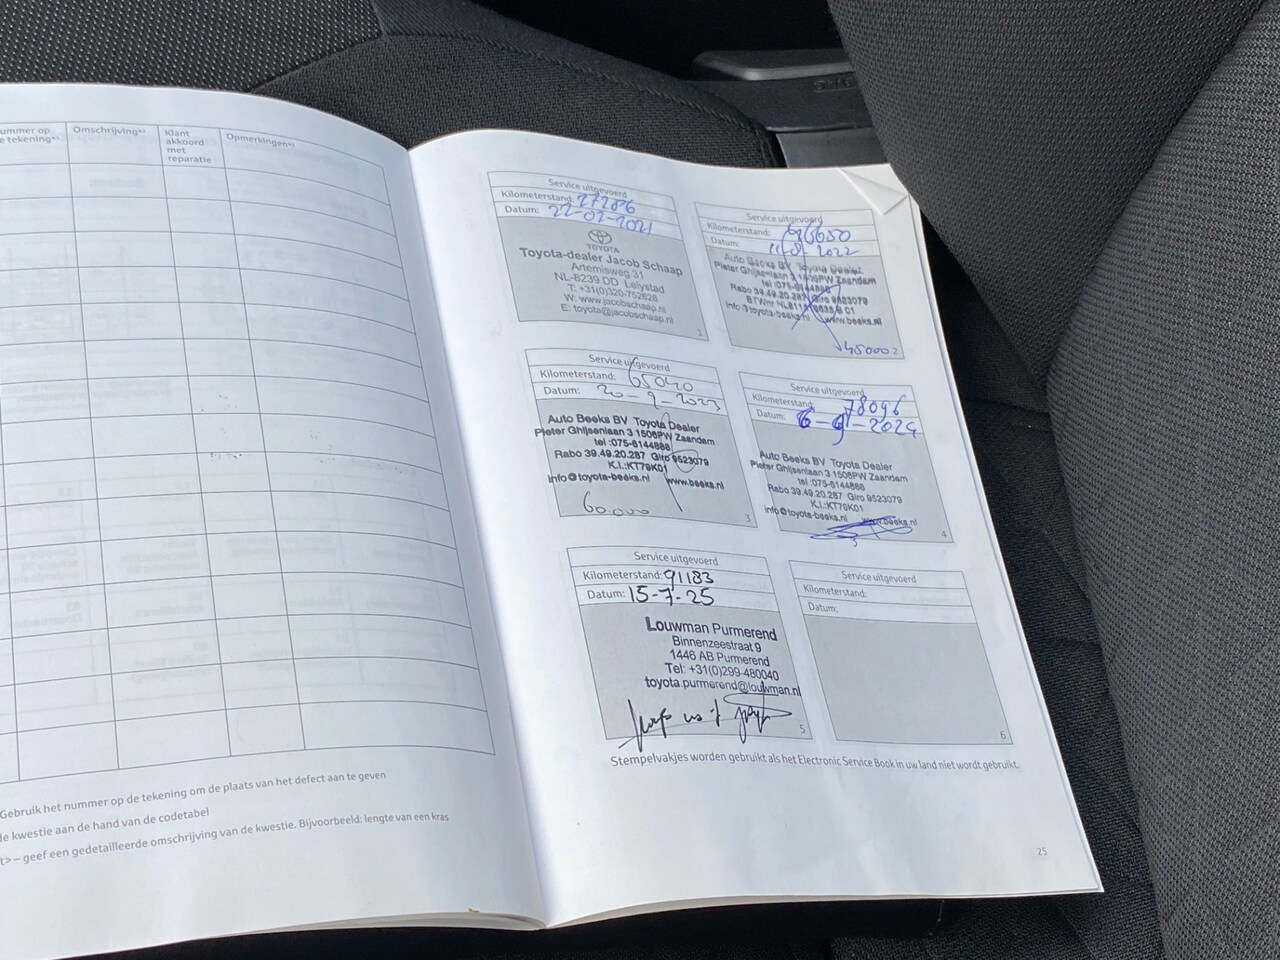 ummer op
e tekening*¹
Omschrijving*²
Klant
akkoord
met
reparatie
Opmerkingen*³
Gebruik het nummer op de tekening om de plaats van het defect aan te geven
de kwestie aan de hand van de codetabel
t> – geef een gedetailleerde omschrijving van de kwestie. Bijvoorbeeld: lengte van een kras
Service uitgevoerd
Kilometerstand: 27286
Datum: 22-02-2021
TOYOTA
Toyota-dealer Jacob Schaap
Artemisweg 31
NL-8239 DD Lelystad
T: +31(0)320-752828
W: www.jacobschaap.nl
E: toyota@jacobschaap.nl
1
Service uitgevoerd
Kilometerstand:
Datum: 2022
Auto Beeks BV Toyota Dealer
Pieter Ghijsenlaan 3 1506PW Zaandam
tel :075-6144888
Rabo 39.49.20.287 Giro 9523079
info@toyota-beeks.nl www.beeks.nl
45000
2
Service uitgevoerd
Kilometerstand: 65040
Datum: 20-9-2023
Auto Beeks BV Toyota Dealer
Pieter Ghijsenlaan 3 1506PW Zaandam
tel :075-6144888
Rabo 39.49.20.287 Giro 9523079
K.I.:KT79K01
info@toyota-beeks.nl www.beeks.nl
60.000
3
Service uitgevoerd
Kilometerstand: 78096
Datum: 6-9-2024
Auto Beeks BV Toyota Dealer
Pieter Ghijsenlaan 3 1506PW Zaandam
tel :075-6144888
Rabo 39.49.20.287 Giro 9523079
K.I.:KT79K01
info@toyota-beeks.nl www.beeks.nl
4
Service uitgevoerd
Kilometerstand: 91183
Datum: 15-7-25
Louwman Purmerend
Binnenzeestraat 9
1446 AB Purmerend
Tel: +31(0)299-480040
toyota.purmerend@louwman.nl
5
Service uitgevoerd
Kilometerstand:
Datum:
6
Stempelvakjes worden gebruikt als het Electronic Service Book in uw land niet wordt gebruikt.
25